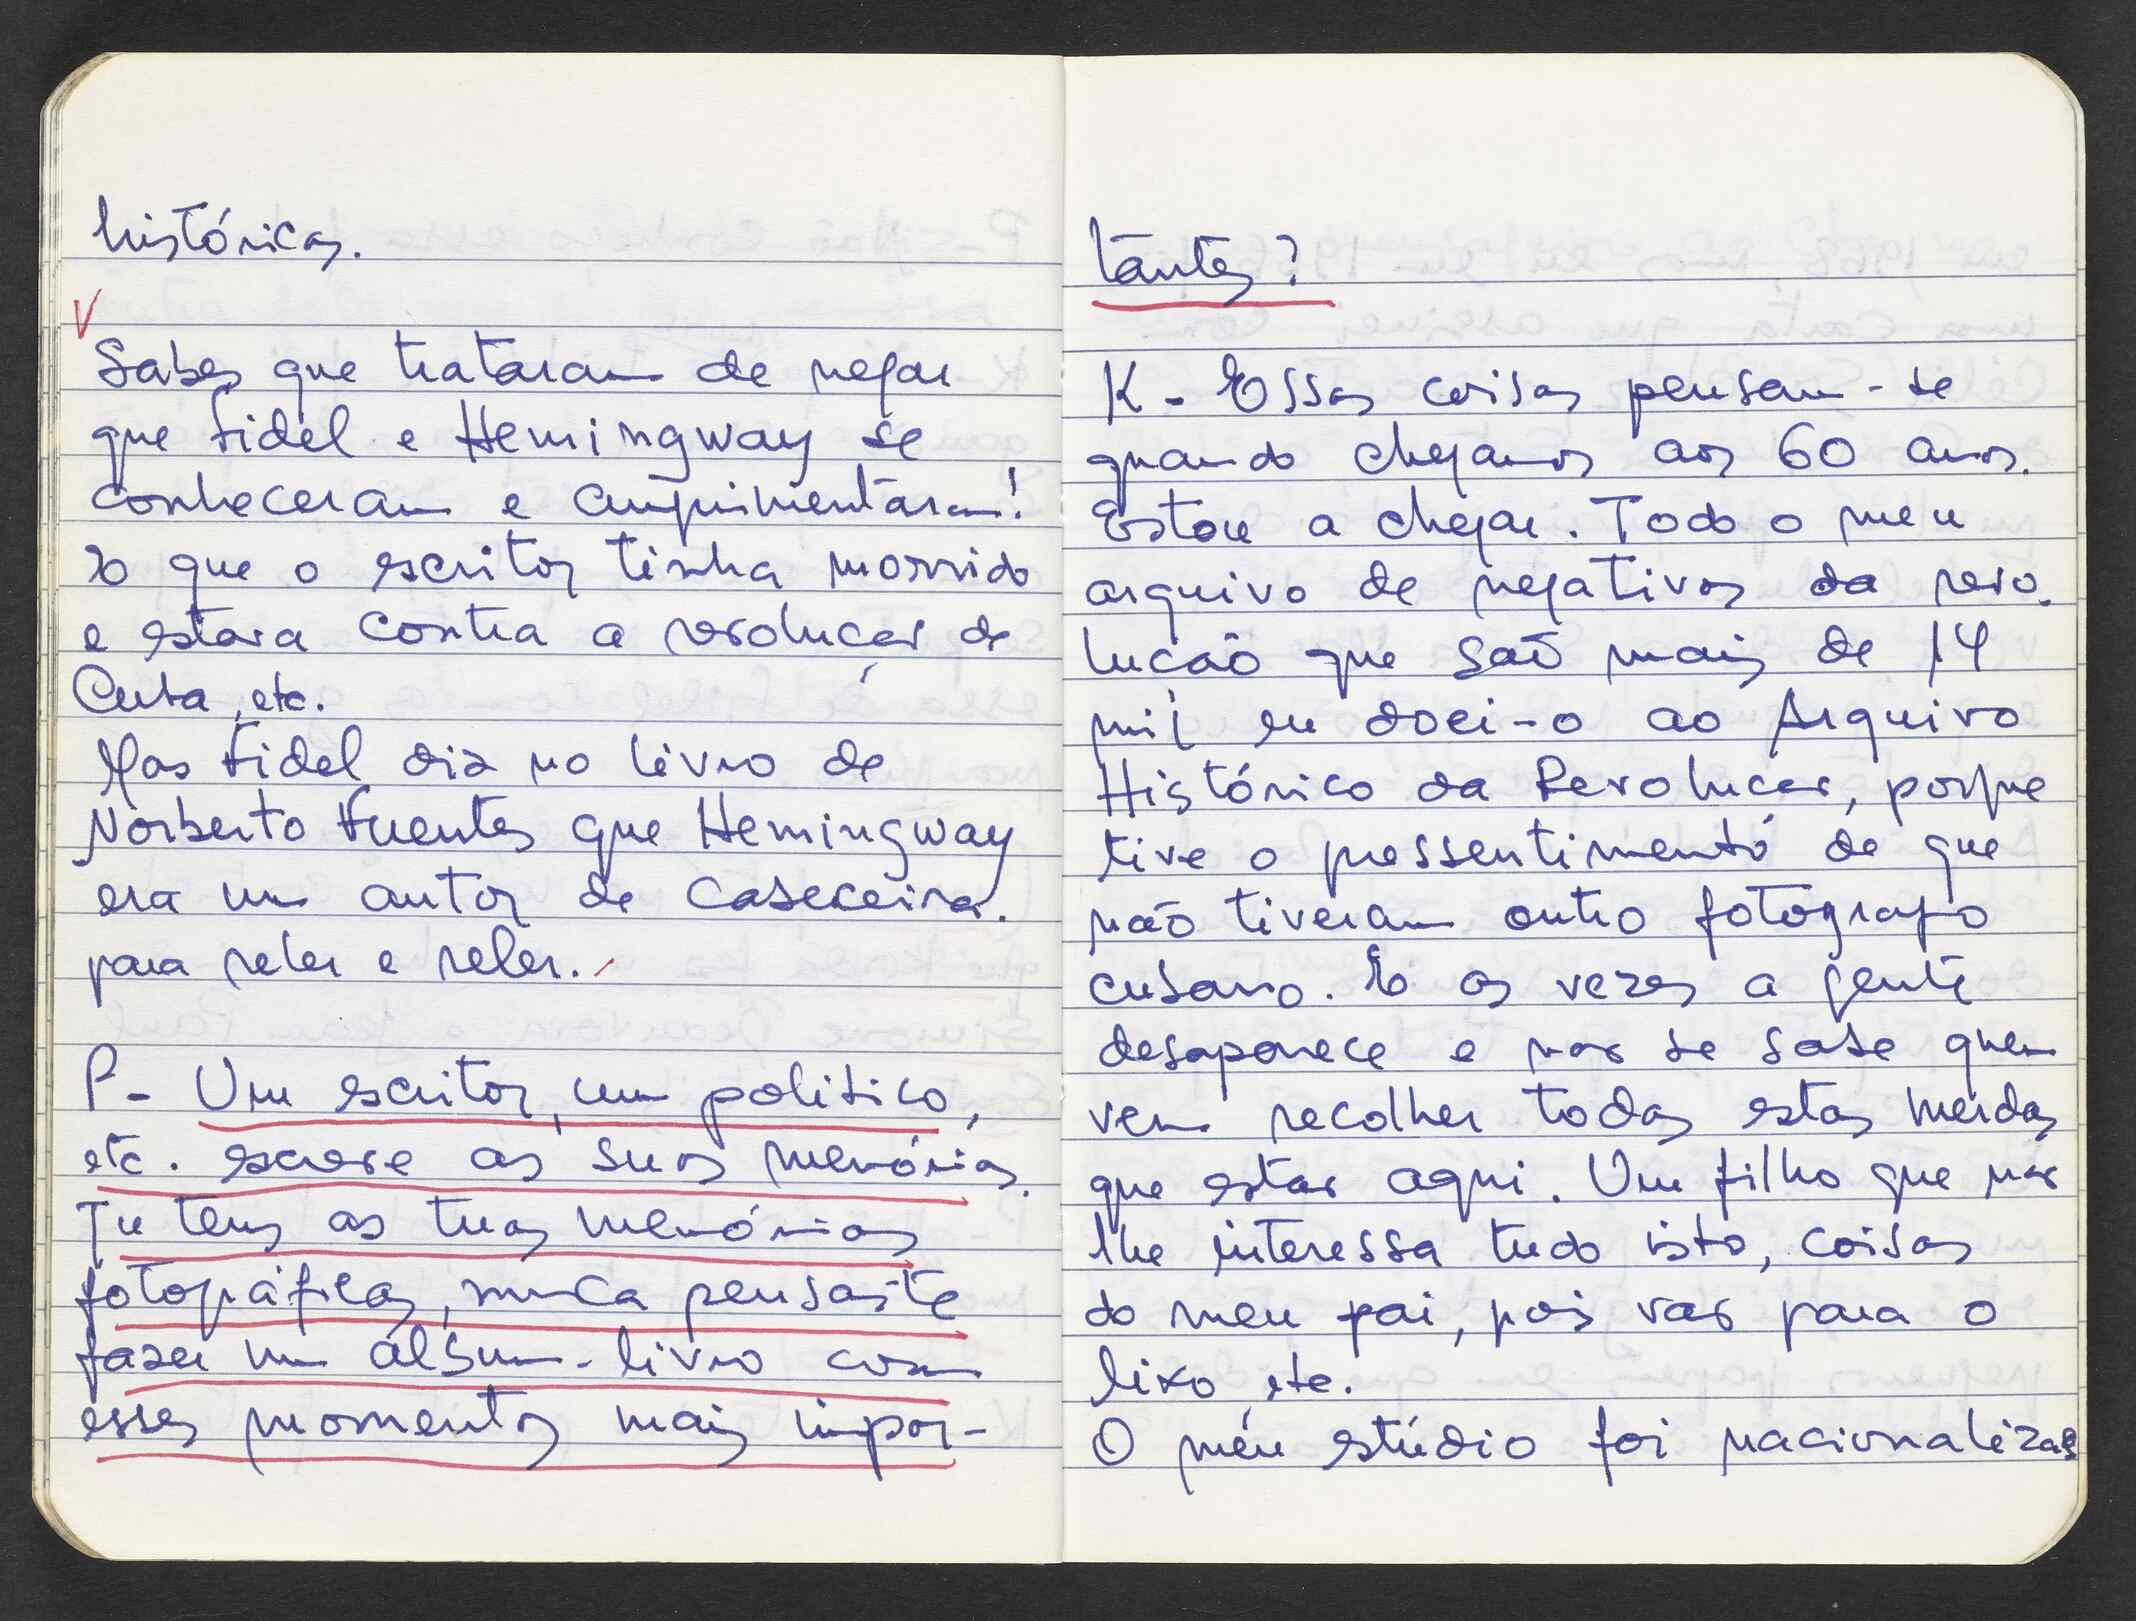 históricas.
V
Sabes que trataram de negar
que Fidel e Hemingway se
conheceram e cumprimentaram!
E que o escritor tinha morrido
e estava contra a revolução de
Cuba, etc.
Mas Fidel diz no livro de
Norberto Fuentes que Hemingway
era um autor de cabeceira.
para reler e reler.
P- Um escritor, um politico,
etc. escreve as suas memórias.
Tu tens as tuas memórias
fotográficas, nunca pensaste
fazer um álbum-livro com
esses momentos mais impor-
tantes?
K- Essas coisas pensam-se
quando chegamos aos 60 anos.
Estou a chegar. Todo o meu
arquivo de negativos da revo-
lução que são mais de 14
mil eu doei-o ao Arquivo
Histórico da Revolução, porque
tive o pressentimento de que
não tiveram outro fotografo
cubano. E as vezes a gente
desaparece e não se sabe quem
vem recolher todas estas merdas
que estão aqui. Um filho que não
lhe interessa tudo isto, coisas
do meu pai, pois vão para o
lixo, etc.
O meu estúdio foi nacionalizado